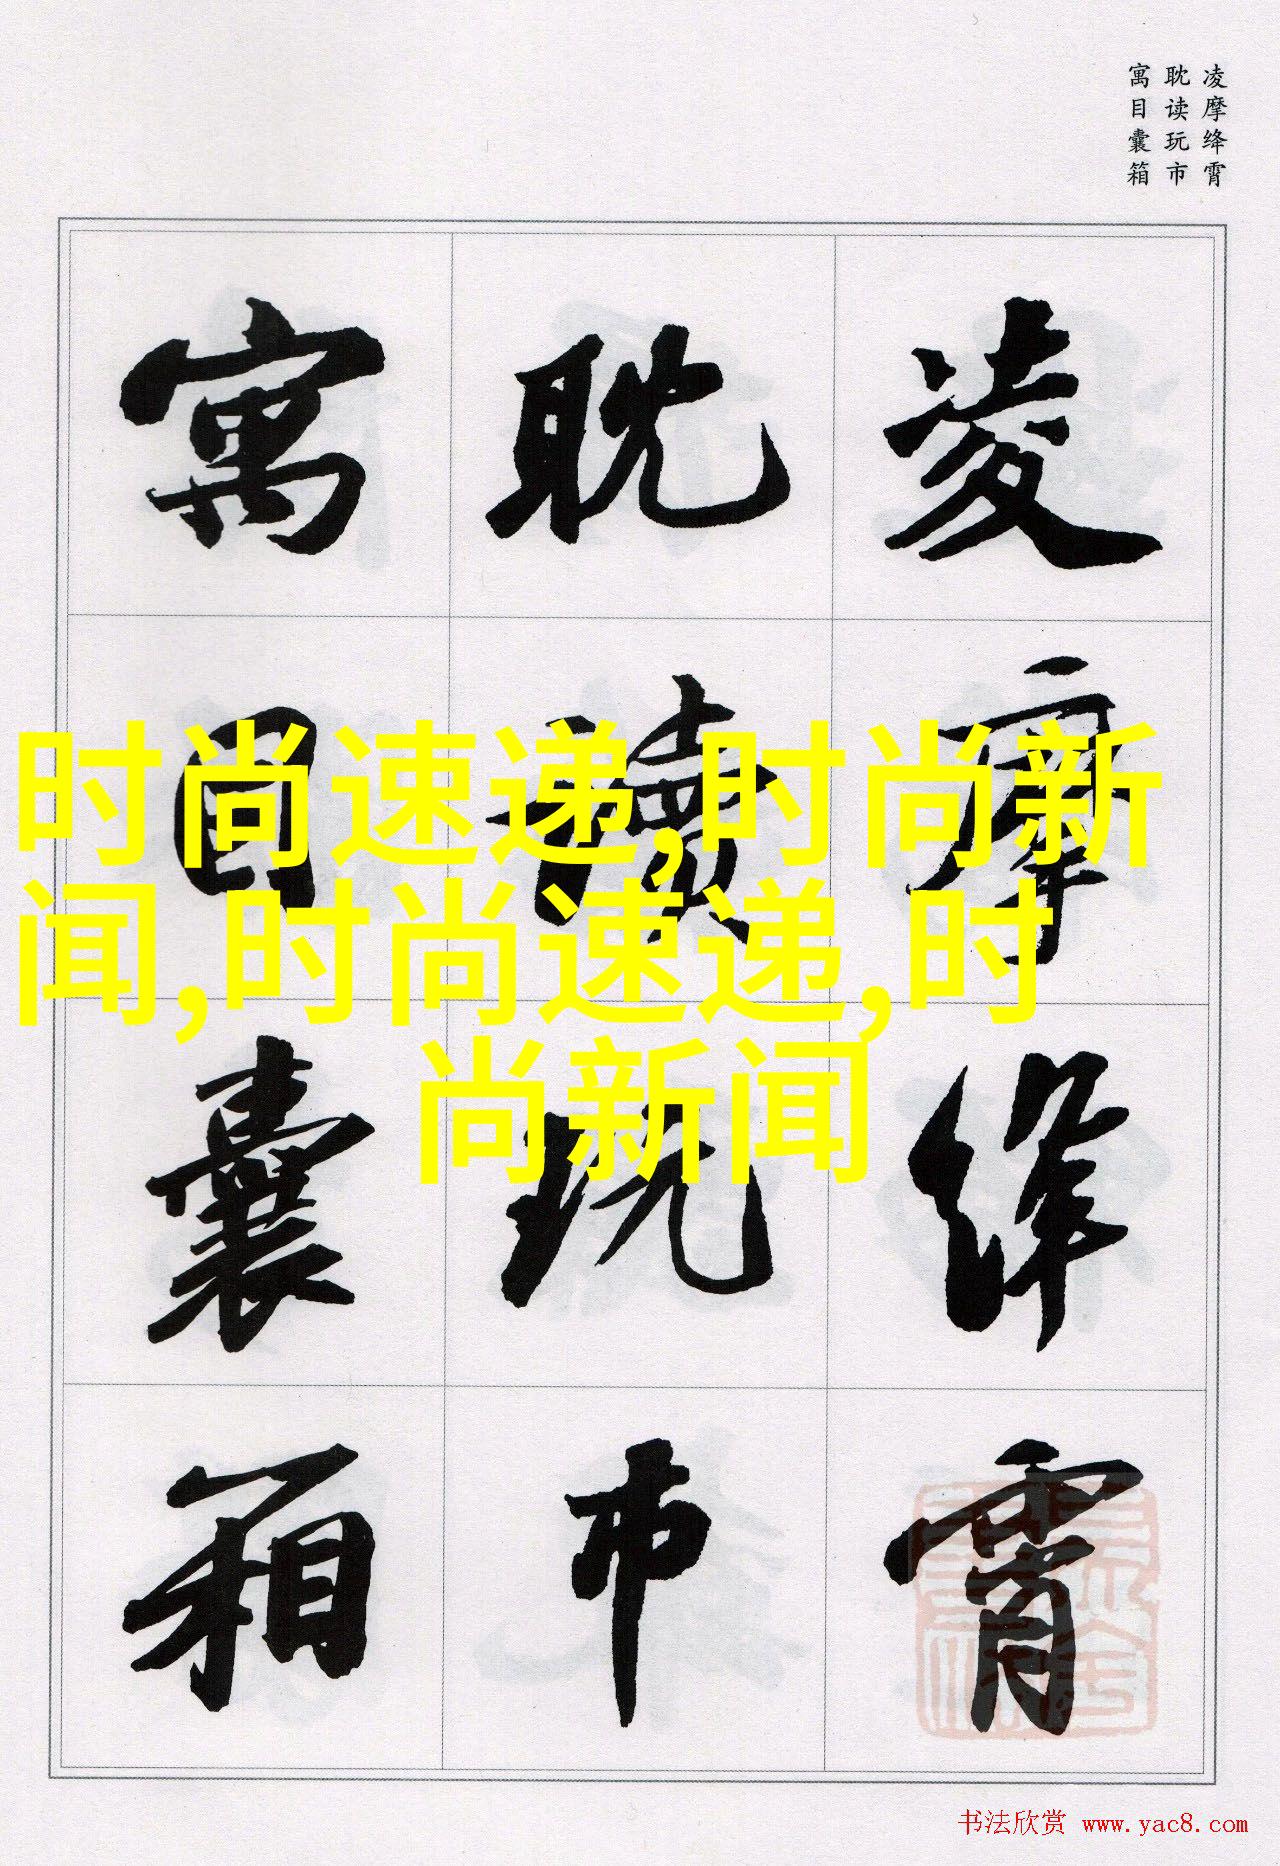 凌摩绛霄
耽读玩市
寓目囊箱
凌摩绛霄
耽讀玩市
寓目囊箱
时尚速递,时尚新
闻,时尚速递,时
尚新闻
书法欣赏 www.yac8.com